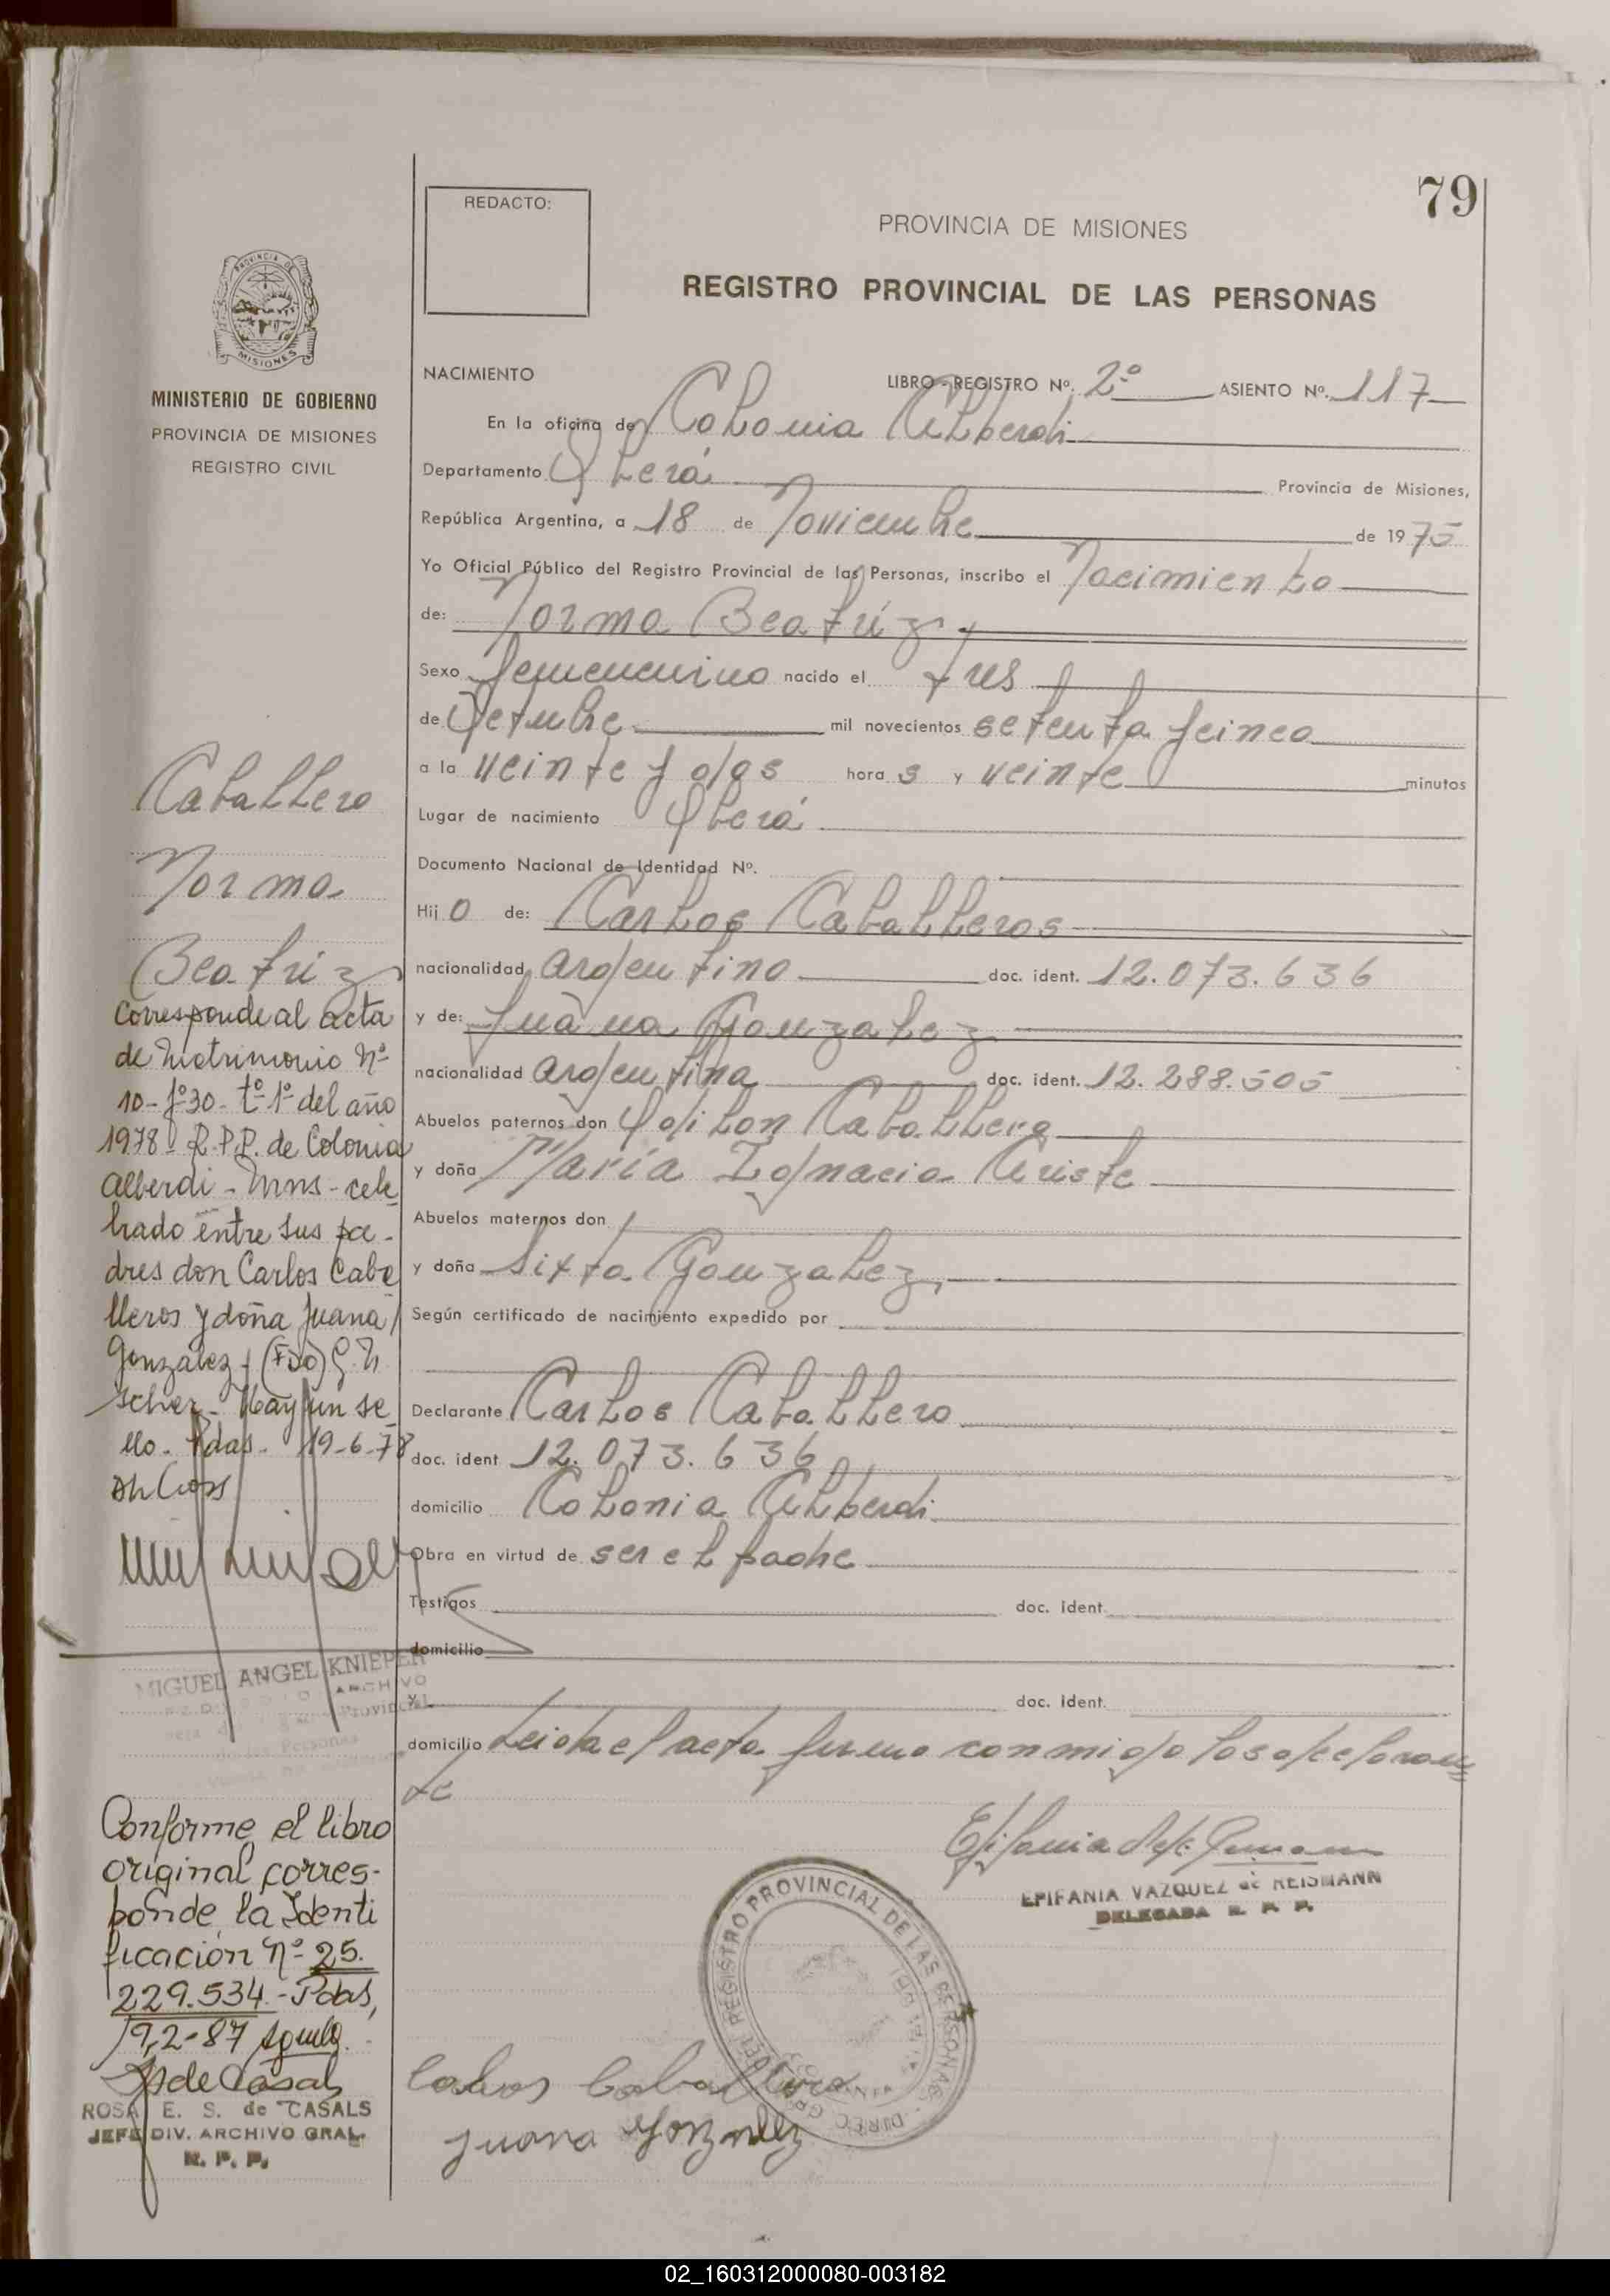 79
REDACTO:
PROVINCIA DE MISIONES
REGISTRO PROVINCIAL DE LAS PERSONAS
PROVINCIA DE
MISIONES
MINISTERIO DE GOBIERNO
PROVINCIA DE MISIONES
REGISTRO CIVIL
NACIMIENTO LIBRO - REGISTRO Nº. 2º ASIENTO Nº. 117
En la oficina de Colonia Alberdi
Departamento Oberá Provincia de Misiones,
República Argentina, a 18 de Noviembre de 1975
Yo Oficial Público del Registro Provincial de las Personas, inscribo el Nacimiento
de: Norma Beatríz.
Sexo femenino nacido el tres
de Octubre mil novecientos setenta y cinco
a la veinte y dos hora s y veinte minutos
Lugar de nacimiento Oberá
Documento Nacional de Identidad Nº.
Hij o de: Carlos Caballeros
nacionalidad argentino doc. ident. 12.073.636
y de: Juana Gonzalez
nacionalidad argentina doc. ident. 12.288.505
Abuelos paternos don Odilon Caballero
y doña María Ignacia
Abuelos maternos don
y doña Sixta Gonzalez,
Según certificado de nacimiento expedido por
Declarante Carlos Caballero
doc. ident 12.073.636
domicilio Colonia Alberdi
Obra en virtud de ser el padre
Testigos doc. ident.
domicilio
y doc. ident.
domicilio Leida el acta firman conmigo los declaran
te
EPIFANIA VAZQUEZ de REISMANN
DELEGADA R. P. P.
REGISTRO PROVINCIAL DE LAS PERSONAS
Carlos Caballero
Juana Gonzalez
Caballero
Norma
Beatríz
Corresponde al acta
de Matrimonio Nº
10-fº30-tº-1º del año
1978 R.P.P. de Colonia
Alberdi - Mnes - cele
brado entre sus pa-
dres don Carlos Caba
lleros y doña Juana
Gonzalez - (FDO)
Hay un se
llo. Pdas. 19-6-78
MIGUEL ANGEL KNIEPER
ARCHIVO
Conforme el libro
original corres-
ponde la Identi
ficación Nº 25.
229.534.-Pdas,
19,2-87
de Casals
ROSA E. S. de CASALS
JEFE DIV. ARCHIVO GRAL.
R. P. P.
02_160312000080-003182